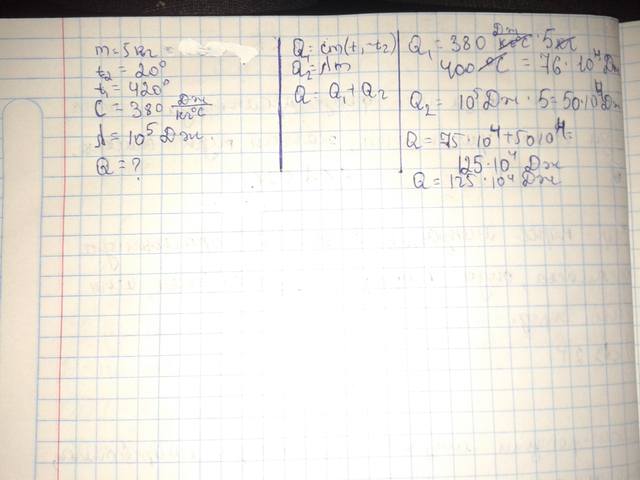 m = 5 кг =
t₂ = 20°
t₁ = 420°
C = 380 Дж/кг°С
λ = 10⁵ Дж.
Q = ?
Q₁ = cm(t₁ - t₂)
Q₂ = λm
Q = Q₁ + Q₂
Q₁ = 380 Дж/кг°С · 5кг
400 °C = 76 · 10⁴ Дж
Q₂ = 10⁵ Дж · 5 = 50·10⁴ Дж
Q = 75 · 10⁴ + 50·10⁴ =
125 · 10⁴ Дж
Q = 125 · 10⁴ Дж